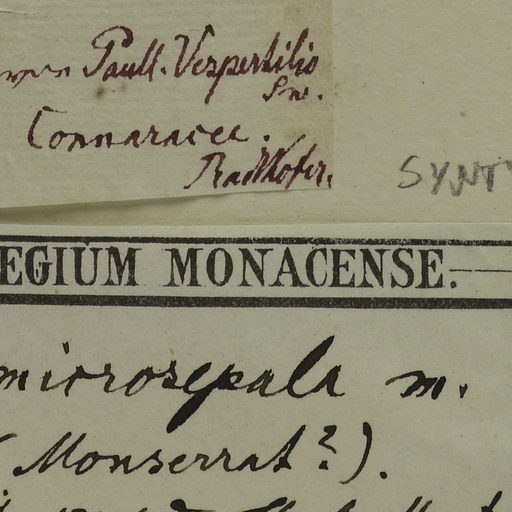 Paull. Vespertilio
Sw.
Connaracee.
Radlkofer.
SYNT
EGIUM MONACENSE.
microsepala m.
(Monserrat?).